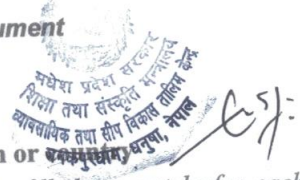 ument
मधेश प्रदेश सरकार
शिक्षा तथा संस्कृति मन्त्रालय
व्यावसायिक तथा सीप विकास तालिम केन्द्र
जनकपुरधाम, धनुषा, नेपाल
n or country